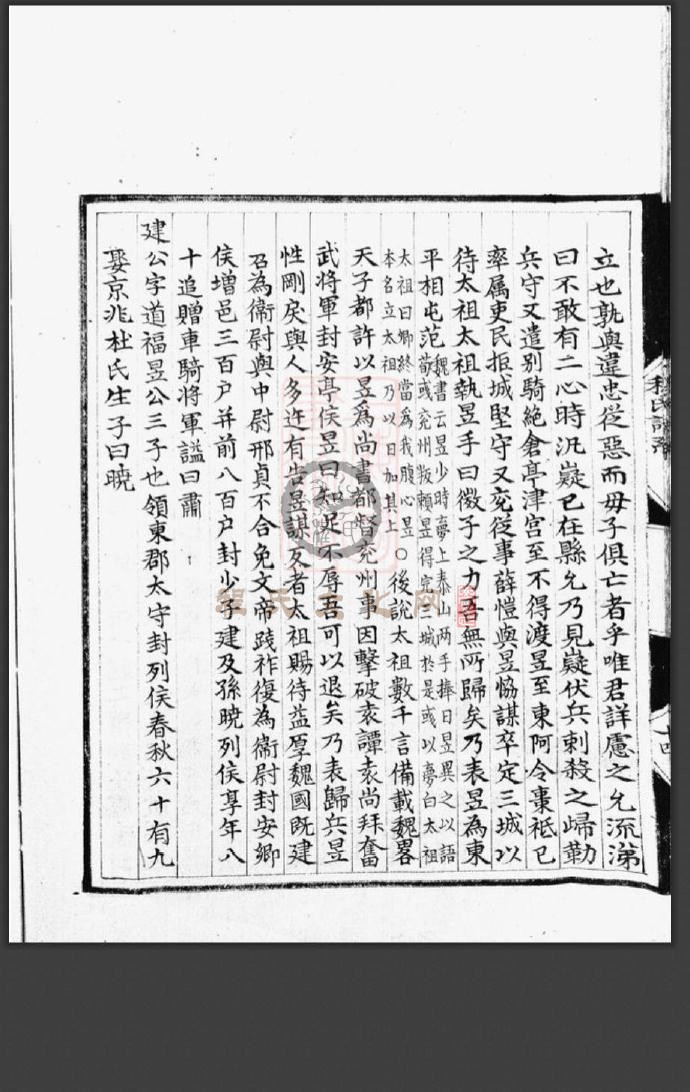 立也孰與違忠從惡而毋子俱亡者乎唯君詳慮之允流涕
曰不敢有二心時汎嶷已在縣允乃見嶷伏兵刺殺之歸勒
兵守又遣別騎絶倉亭津宫至不得渡昱至東阿令棗祗已
率属吏民拒城堅守又兖従事薛愷與昱恊謀卒定三城以
待太祖太祖執昱手曰微子之力吾無所歸矣乃表昱為東
平相屯范
魏書云昱少時夢上泰山两手捧日昱異之以語
荀彧兖州叛賴昱得完三城於是彧以夢白太祖
太祖曰卿終當為我腹心昱
本名立太祖乃以日加其上
○後說太祖數千言備載魏畧
天子都許以昱爲尚書都督兖州事因擊破袁譚袁尚拜奮
武将軍封安亭侯昱曰知足不辱吾可以退矣乃表歸兵昱
性剛戾與人多迕有告昱謀反者太祖賜待益厚魏國既建
召為衛尉與中尉邢貞不合免文帝踐祚復為衛尉封安鄉
侯增邑三百户并前八百户封少子建及孫曉列侯享年八
十追贈車騎将軍謚曰肅
建公字道福昱公三子也領東郡太守封列侯春秋六十有九
娶京兆杜氏生子曰曉
程氏文化网
十四